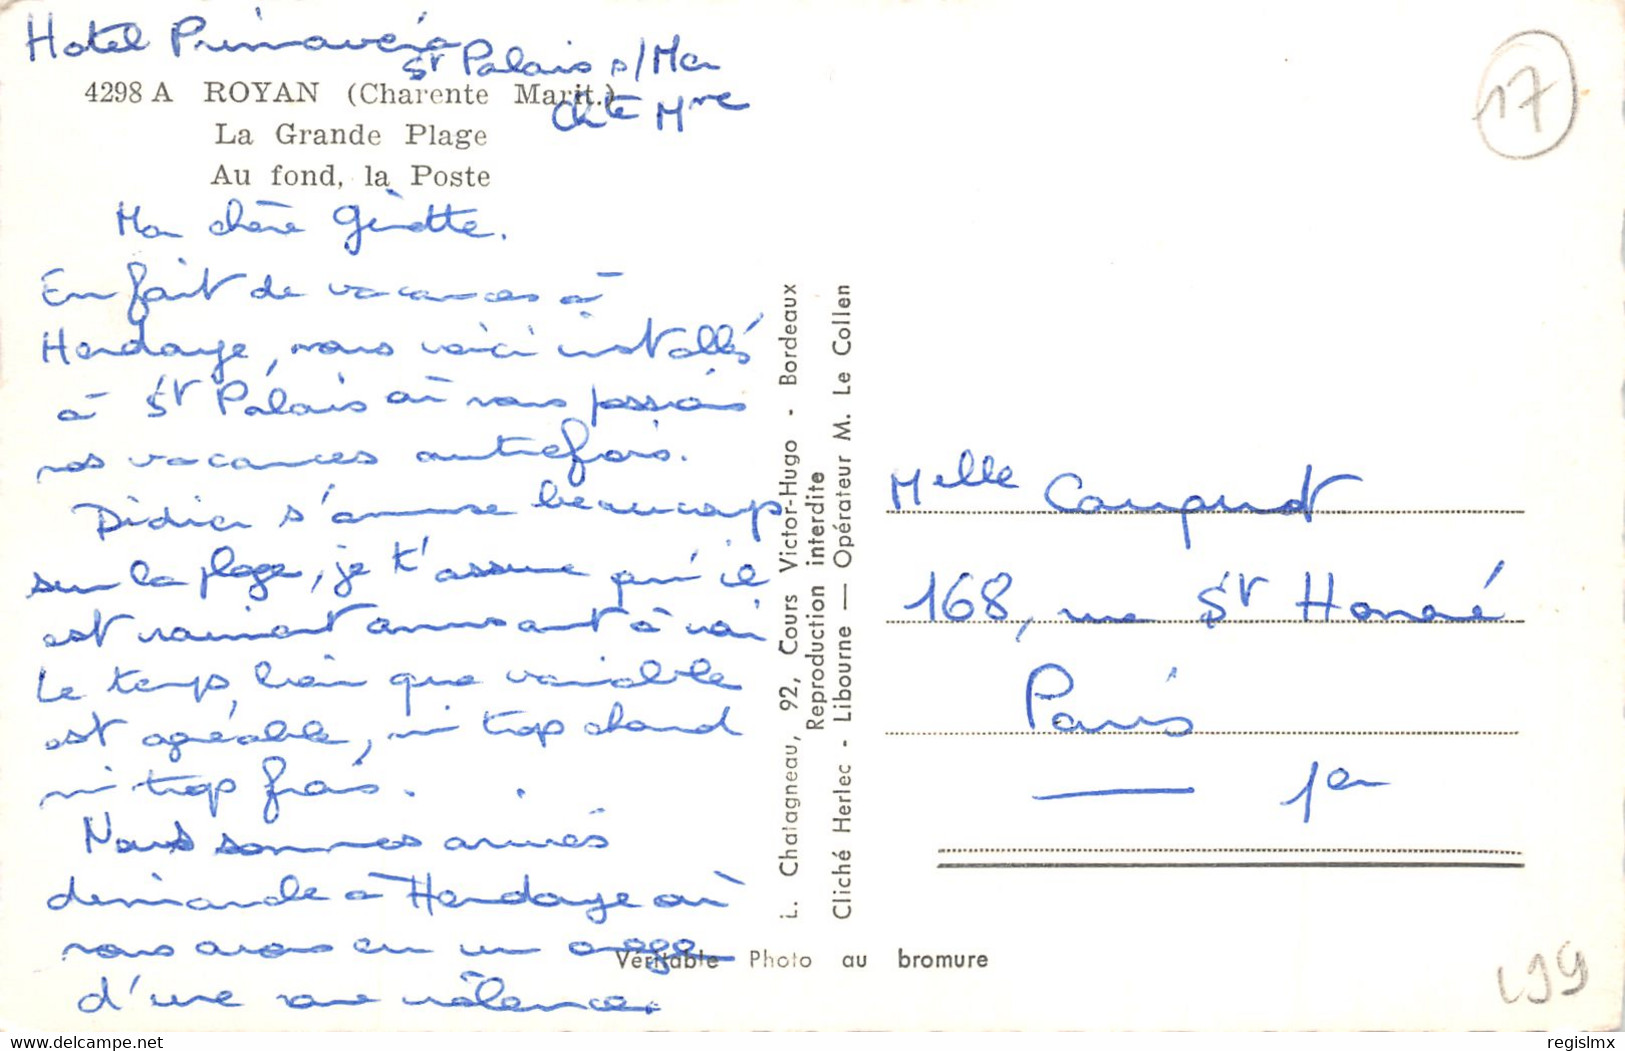 Hotel Primavéra
St Palais s/Mer
Chte Mme
4298 A ROYAN (Charente Marit.)
La Grande Plage
Au fond, la Poste
Ma chère Ginette.
En fait de vacances à
Hendaye, nous voici installés
à St Palais où nous passions
nos vacances autrefois.
Didier s'amuse beaucoup
sur la plage, je t'assure qu'il
est vraiment amusant à voir
Le temps, bien que variable
est agréable, ni trop chaud
ni trop frais.
Nous sommes arrivés
dimanche à Hendaye où
nous avons eu un orage
d'une rare violence.
L. Chatagneau, 92, Cours Victor-Hugo - Bordeaux
Reproduction interdite
Cliché Herlec - Libourne — Opérateur M. Le Collen
Véritable Photo au bromure
17
Melle
168, rue St Honoré
Paris
1er
L99
regislmx